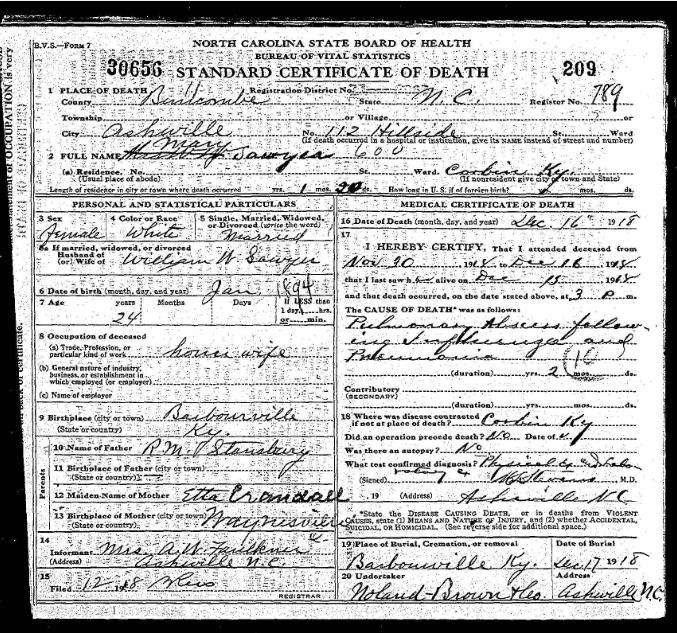 NORTH CAROLINA STATE BOARD OF HEALTH
B.V.S.—FORM 7
BUREAU OF VITAL STATISTICS
30656 STANDARD CERTIFICATE OF DEATH 209
1 PLACE OF DEATH Registration District No.
County Buncombe State N.C. Register No. 789
Township or Village or
City Ashville No. 112 Hillside St. Ward
(If death occurred in a hospital or institution, give its NAME instead of street and number)
2 FULL NAME Mary Sawyer 600
(a) Residence. No. St. Ward. Corbin, Ky.
(Usual place of abode) (If nonresident give city or town and State)
Length of residence in city or town where death occurred yrs. 1 mos. 20 ds. How long in U.S. if of foreign birth? mos. ds.
PERSONAL AND STATISTICAL PARTICULARS
3 Sex 4 Color or Race 5 Single, Married, Widowed, or Divorced (write the word)
Female White Married
5a If married, widowed, or divorced
Husband of
(or) Wife of William W Sawyer
6 Date of birth (month, day, and year) Jan 1894
7 Age years Months Days If LESS than 1 day, hrs. or min.
24
8 Occupation of deceased
(a) Trade, Profession, or particular kind of work house wife
(b) General nature of industry, business, or establishment in which employed (or employer)
(c) Name of employer
9 Birthplace (city or town) Barbourville
(State or country) Ky.
Parents
10 Name of Father R.M. Stansbury
11 Birthplace of Father (city or town)
(State or country)
12 Maiden Name of Mother Etta Crandall
13 Birthplace of Mother (city or town) Waynesville
(State or country)
14
Informant Mrs. A.W. Faulkner
(Address) Ashville N.C.
15
Filed 12 18
REGISTRAR
MEDICAL CERTIFICATE OF DEATH
16 Date of Death (month, day, and year) Dec. 16 1918
17
I HEREBY CERTIFY, That I attended deceased from
Nov 20 1918, to Dec 16 1918
that I last saw her alive on Dec 15 1918
and that death occurred, on the date stated above, at 3 P m.
The CAUSE OF DEATH* was as follows:
Pulmonary Abscess follow-
ing Influenza and
Pneumonia
(duration) yrs. 2 mos. ds.
Contributory
(SECONDARY)
(duration) yrs. mos. ds.
18 Where was disease contracted
if not at place of death? Corbin Ky
Did an operation precede death? No Date of
Was there an autopsy? No
What test confirmed diagnosis? Physical
(Signed) Stevens M.D.
, 19 (Address) Ashville N C
*State the DISEASE CAUSING DEATH, or in deaths from VIOLENT
CAUSES, state (1) MEANS AND NATURE OF INJURY, and (2) whether ACCIDENTAL,
SUICIDAL, or HOMICIDAL. (See reverse side for additional space.)
19 Place of Burial, Cremation, or removal Date of Burial
Barbourville Ky. Dec 17 1918
20 Undertaker Address
Noland-Brown & Co. Ashville N.C.